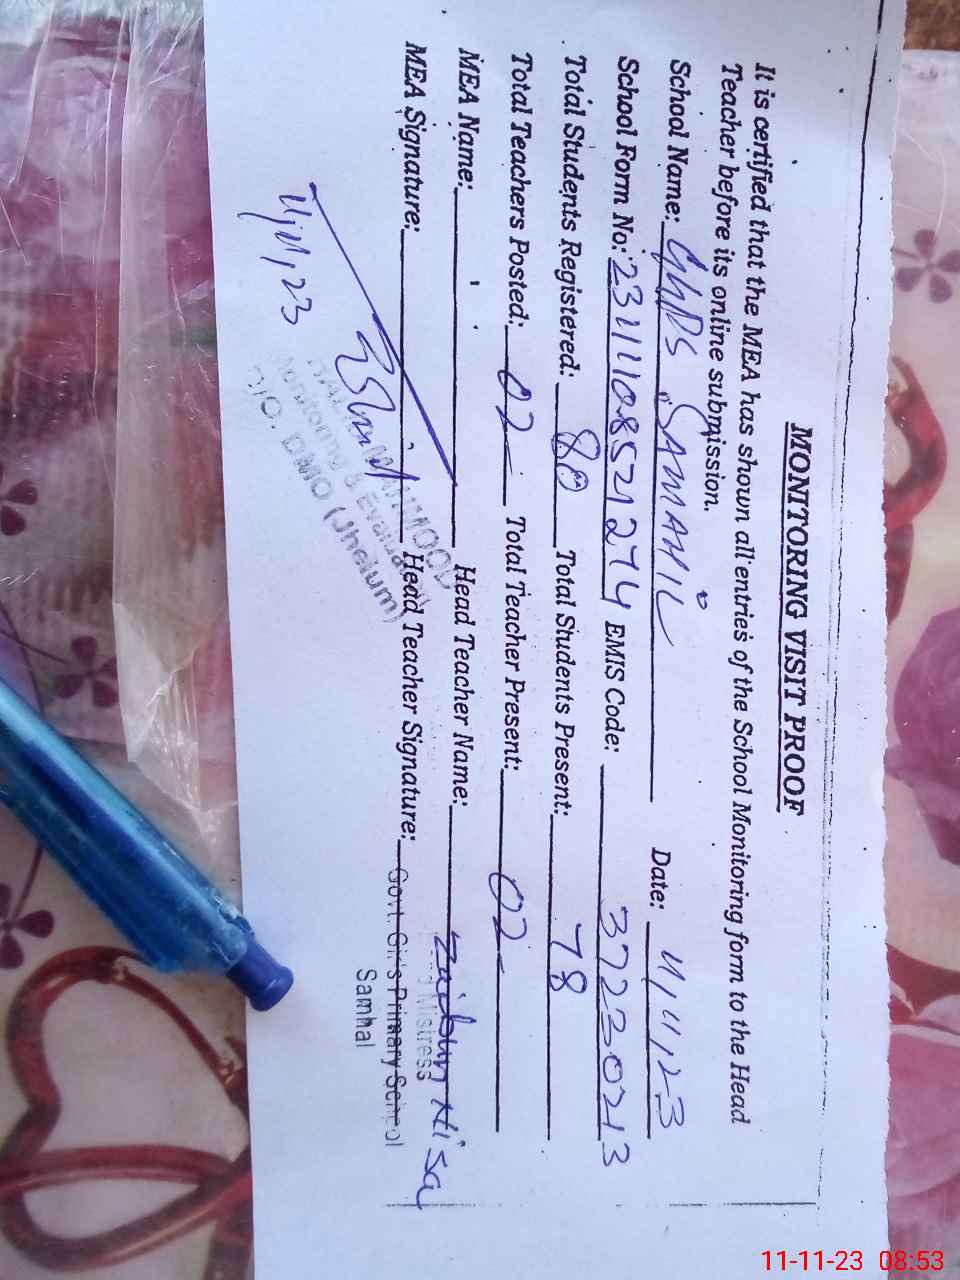 MONITORING VISIT PROOF
It is certified that the MEA has shown all entries of the School Monitoring form to the Head
Teacher before its online submission.
School Name: GMPS SAMAHIL Date: 11/11/23
School Form No: 23111108521274 EMIS Code: 372230213
Total Students Registered: 80 Total Students Present: 78
Total Teachers Posted: 02 Total Teacher Present: 02
MEA Name: Head Teacher Name: Zaibun Nisa
MEA Signature: Head Teacher Signature:
Head Mistress
Govt. Girls Primary School
Samhal
11/11/23
MAHMOOD
Monitoring & Evaluation
O/O. DMO (Jhelum)
11-11-23 08:53